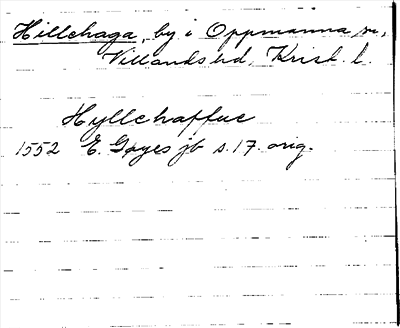 Hillehaga, by i Oppmanna sn,
Villands hd, Krist. l.
Hyllehaffue
1552 E. Gøyes jb s. 17. orig.